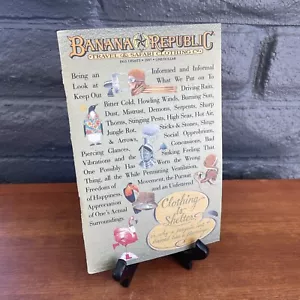 BANANA REPUBLIC
TRAVEL & SAFARI CLOTHING Co.
Being an Informed and Informal
Look at What We Put on To
Keep Out Driving Rain,
Bitter Cold, Howling Winds, Burning Sun,
Dust, Mistrust, Demons, Serpents, Sharp
Thorns, Stinging Pests, High Seas, Hot Air,
Jungle Rot, Sticks & Stones, Slings
& Arrows, Social Opprobrium,
Piercing Glances, Concussions, Bad
Vibrations and the Sinking Feeling That
One Possibly Has Worn the Wrong
Thing, all the While Permitting Ventilation,
Freedom of Movement, the Pursuit
of Happiness, and an Unfettered
Appreciation
of One's Actual
Surroundings.
Clothing
As
Shelter